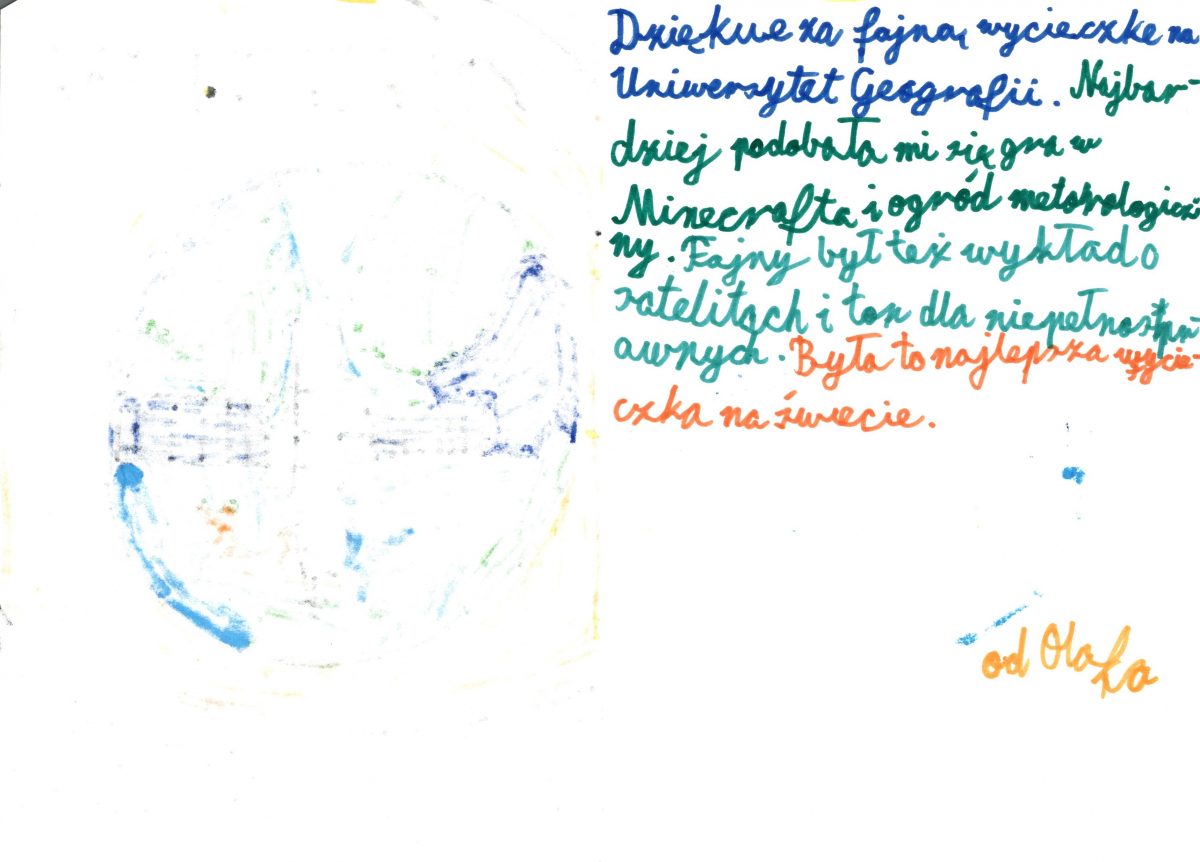 Dziękue za fajną wycieczke na
Uniwersytet Geografii. Najbar-
dziej podobała mi się gra w
Minecrafta i ogród metorologicz-
ny. Fajny był też wykład o
satelitach i tor dla niepełnospr-
awnych. Była to najlepsza wycie-
czka na świecie.
od Olafa